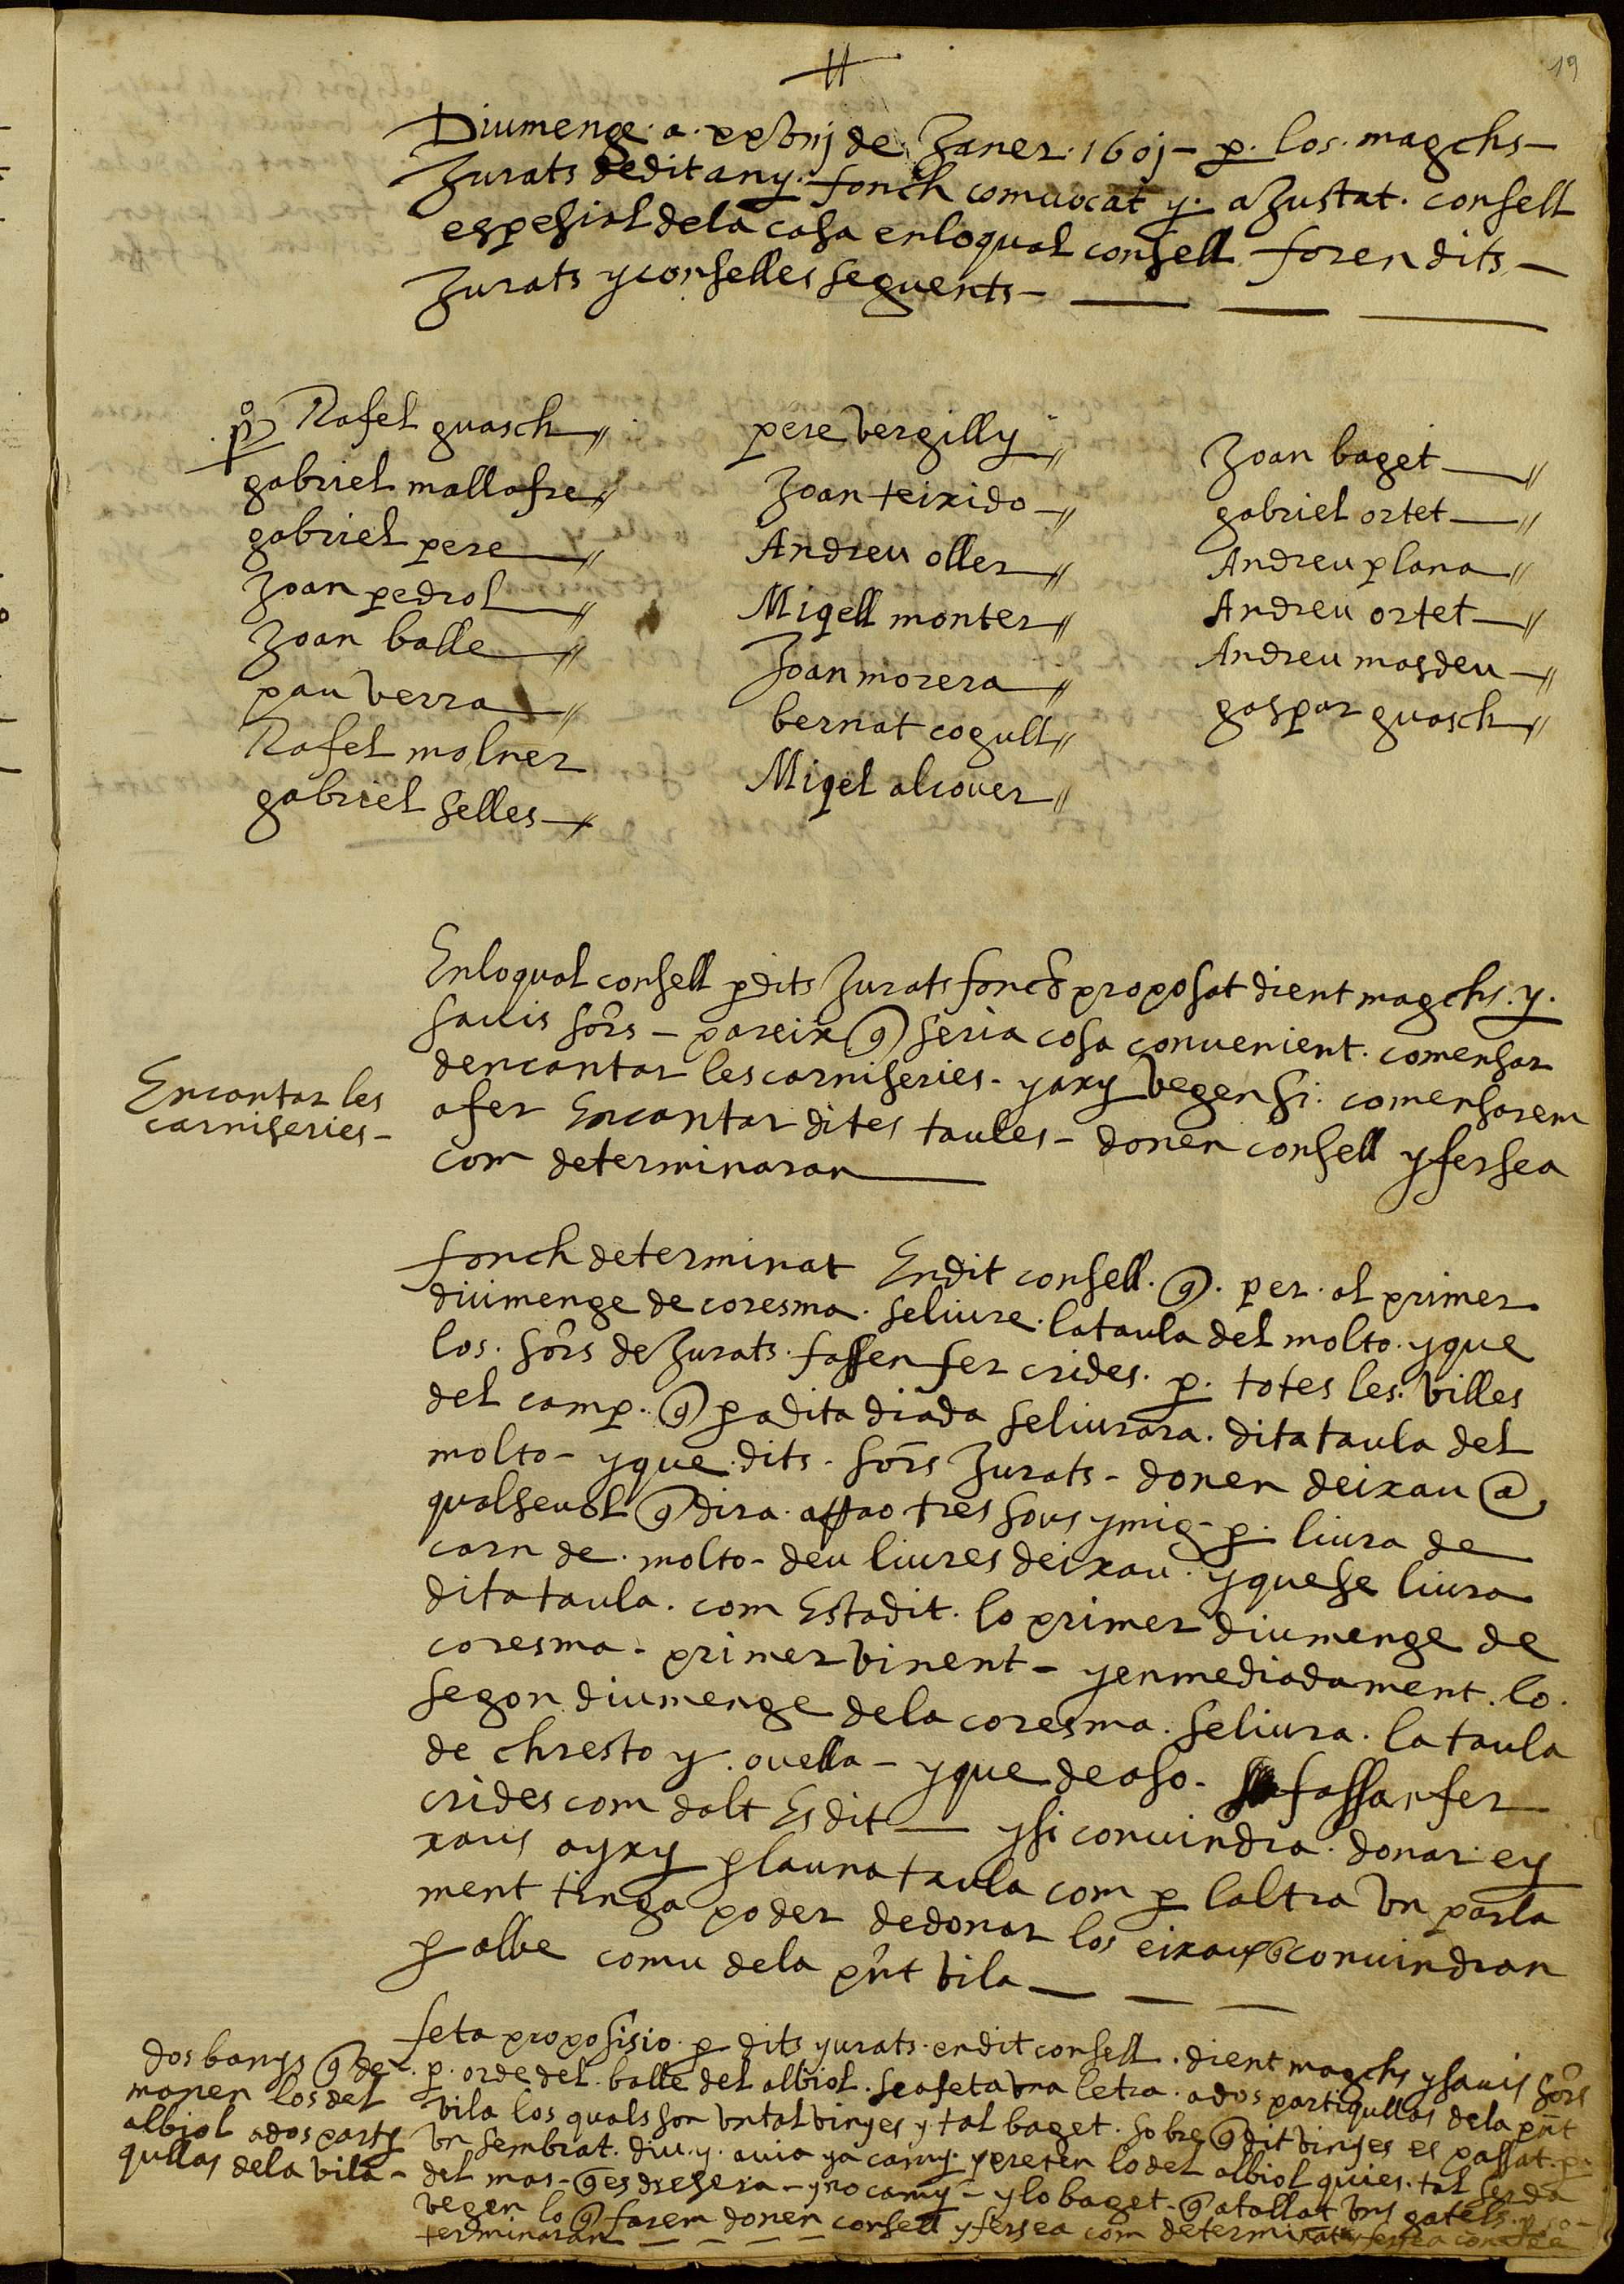 19
Diumenge a xxviij de Janer 1601 - p. los magchs -
Jurats dedit any fonch comuocat y aJustat consell
espesial dela casa enloqual consell foren dits -
Jurats y conselles seguents -
po Rafel guasch
gabriel mallafre
gabriel pere
Joan pedrol
Joan balle
pau verra
Rafel molner
gabriel selles
pere vergilly
Joan teixido
Andreu oller
Miqell monter
Joan morera
bernat cogull
Miqel alcouer
Joan baget
gabriel ortet
Andreu plana
Andreu ortet
Andreu masdeu
gaspar guasch
Enloqual consell p dits Jurats fonch proposat dient magchs y
sauis sors - pareix q seria cosa conuenient comensar
dencantar les carniseries - yaxy vegen si comensarem
afer Encantar dites taules - donen consell yfersea
com determinaran
Encantar les
carniseries -
fonch determinat Endit consell q per al primer
diumenge de coresma seliure lataula del molto yque
los sors de Jurats fassen fer crides p totes les villes
del camp q p adita diada seliurara dita taula del
molto - yque dits sors Jurats - donen deixau a
qualseuol q dira assao tres sous ymig p liura de
carn de molto - deu liures deixau yquese liura
dita taula com Estadit lo primer diumenge de
coresma - primer vinent - yenmediadament lo
segon diumenge dela coresma seliura la taula
de chresto y ouella - yque de aso fassan fer
crides com dalt Esdit - ysi conuindra donar ey
xaus ayxy p launa taula com p laltra vn parla
ment tinga poder dedonar los eixaus q conuindran
p albe comu dela pnt vila
feta proposisio p dits yurats endit consell dient magchs ysauis sors
p orde del balle del albiol seafeta vna letra ados partiqullas dela pnt
vila los quals son vntal vinyes y tal baget sobre q dit vinyes es passat p
vn sembrat diu y auia ya camy ypreten lo del albiol quies tal serda
del mas - q es dresera - yno camy - ylo baget q atallat vns gatells p so -
vegen lo q farem donen consell yfersea com determinat
terminaran
dos banys q de
manen los del
albiol ados party
qullas dela vila -